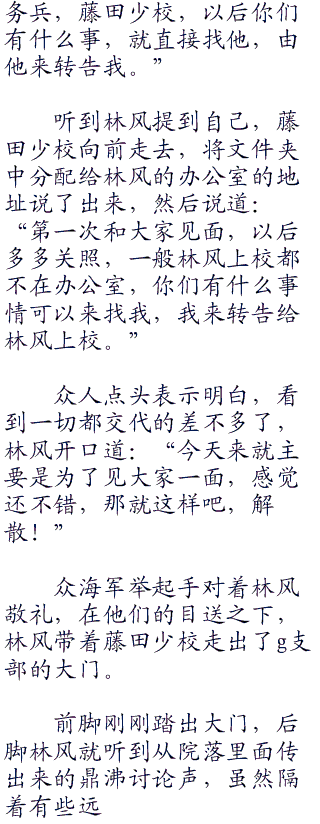 务兵，藤田少校，以后你们
有什么事，就直接找他，由
他来转告我。”
听到林风提到自己，藤
田少校向前走去，将文件夹
中分配给林风的办公室的地
址说了出来，然后说道：
“第一次和大家见面，以后
多多关照，一般林风上校都
不在办公室，你们有什么事
情可以来找我，我来转告给
林风上校。”
众人点头表示明白，看
到一切都交代的差不多了，
林风开口道：“今天来就主
要是为了见大家一面，感觉
还不错，那就这样吧，解
散！”
众海军举起手对着林风
敬礼，在他们的目送之下，
林风带着藤田少校走出了g支
部的大门。
前脚刚刚踏出大门，后
脚林风就听到从院落里面传
出来的鼎沸讨论声，虽然隔
着有些远